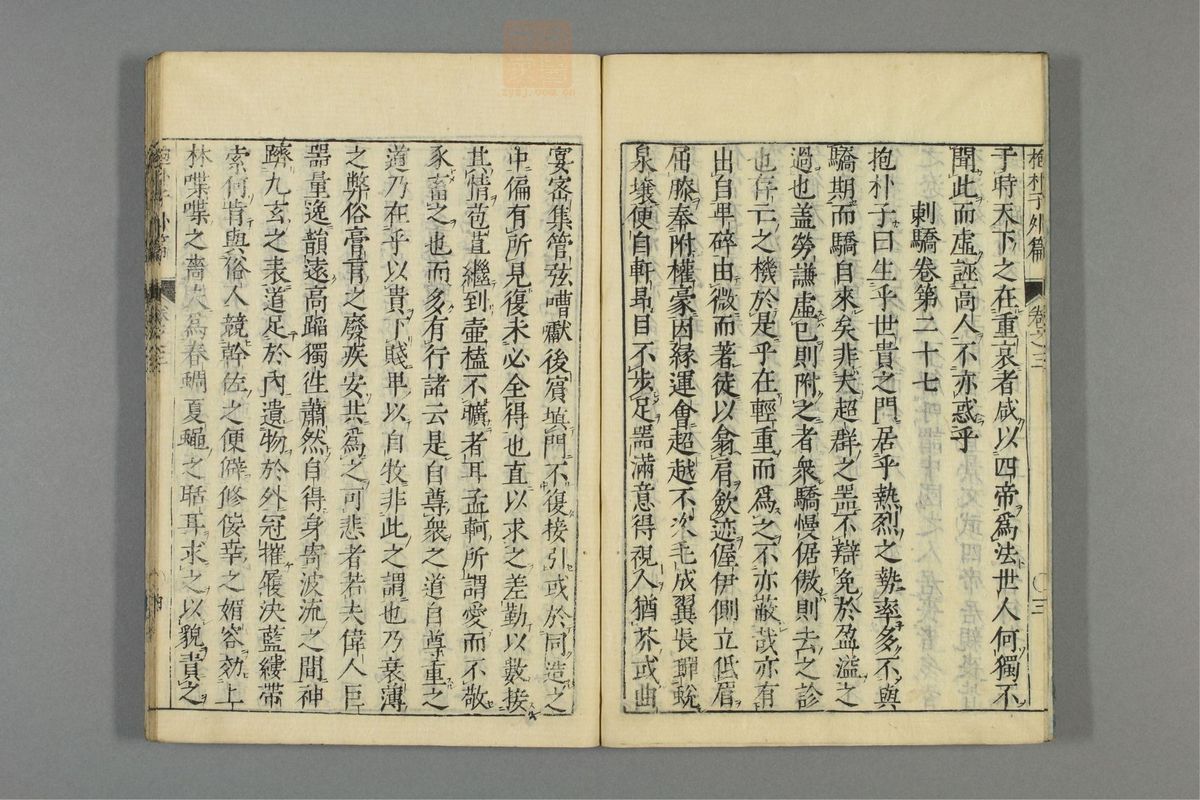 抱朴子外篇 卷之三 〇三
于時天下之在重哀者咸以四帝爲法世人何獨不
聞此而虛誣高人不亦惑乎
刺驕卷第二十七
抱朴子曰生乎世貴之門居乎熱烈之勢率多不與
驕期而驕自來矣非夫超群之器不辯免於盈溢之
過也盖勞謙虛已則附之者衆驕慢倨傲則去之診
也存亡之機於是乎在輕重而爲之不亦蔽哉亦有
出自卑碎由微而著徒以翕肩歛迹偓伊側立低眉
屈膝奉附權豪因縁運會超越不次毛成翼長蟬蛻
泉壤便自軒昻目不步足器滿意得視人猶芥或曲
宴密集管弦嘈囐後賓填門不復接引或於同造之
中偏有所見復未必全得也直以求之差勤以數接
其情苞苴繼到壺榼不曠者耳孟軻所謂愛而不敬
豕畜之也而多有行諸云是自尊衆之道自尊重之
道乃在乎以貴下賤卑以自牧非此之謂也乃衰薄
之弊俗膏肓之廢疾安共爲之可悲者若夫偉人巨
器量逸韻遠高蹈獨徃蕭然自得身寄波流之間神
躋九玄之表道足於內遺物於外冠摧履決藍縷帶
索何肯與俗人競幹佐之便僻修佞幸之媚容効上
林喋喋之嗇夫爲春蜩夏蠅之聒耳求之以貌責之